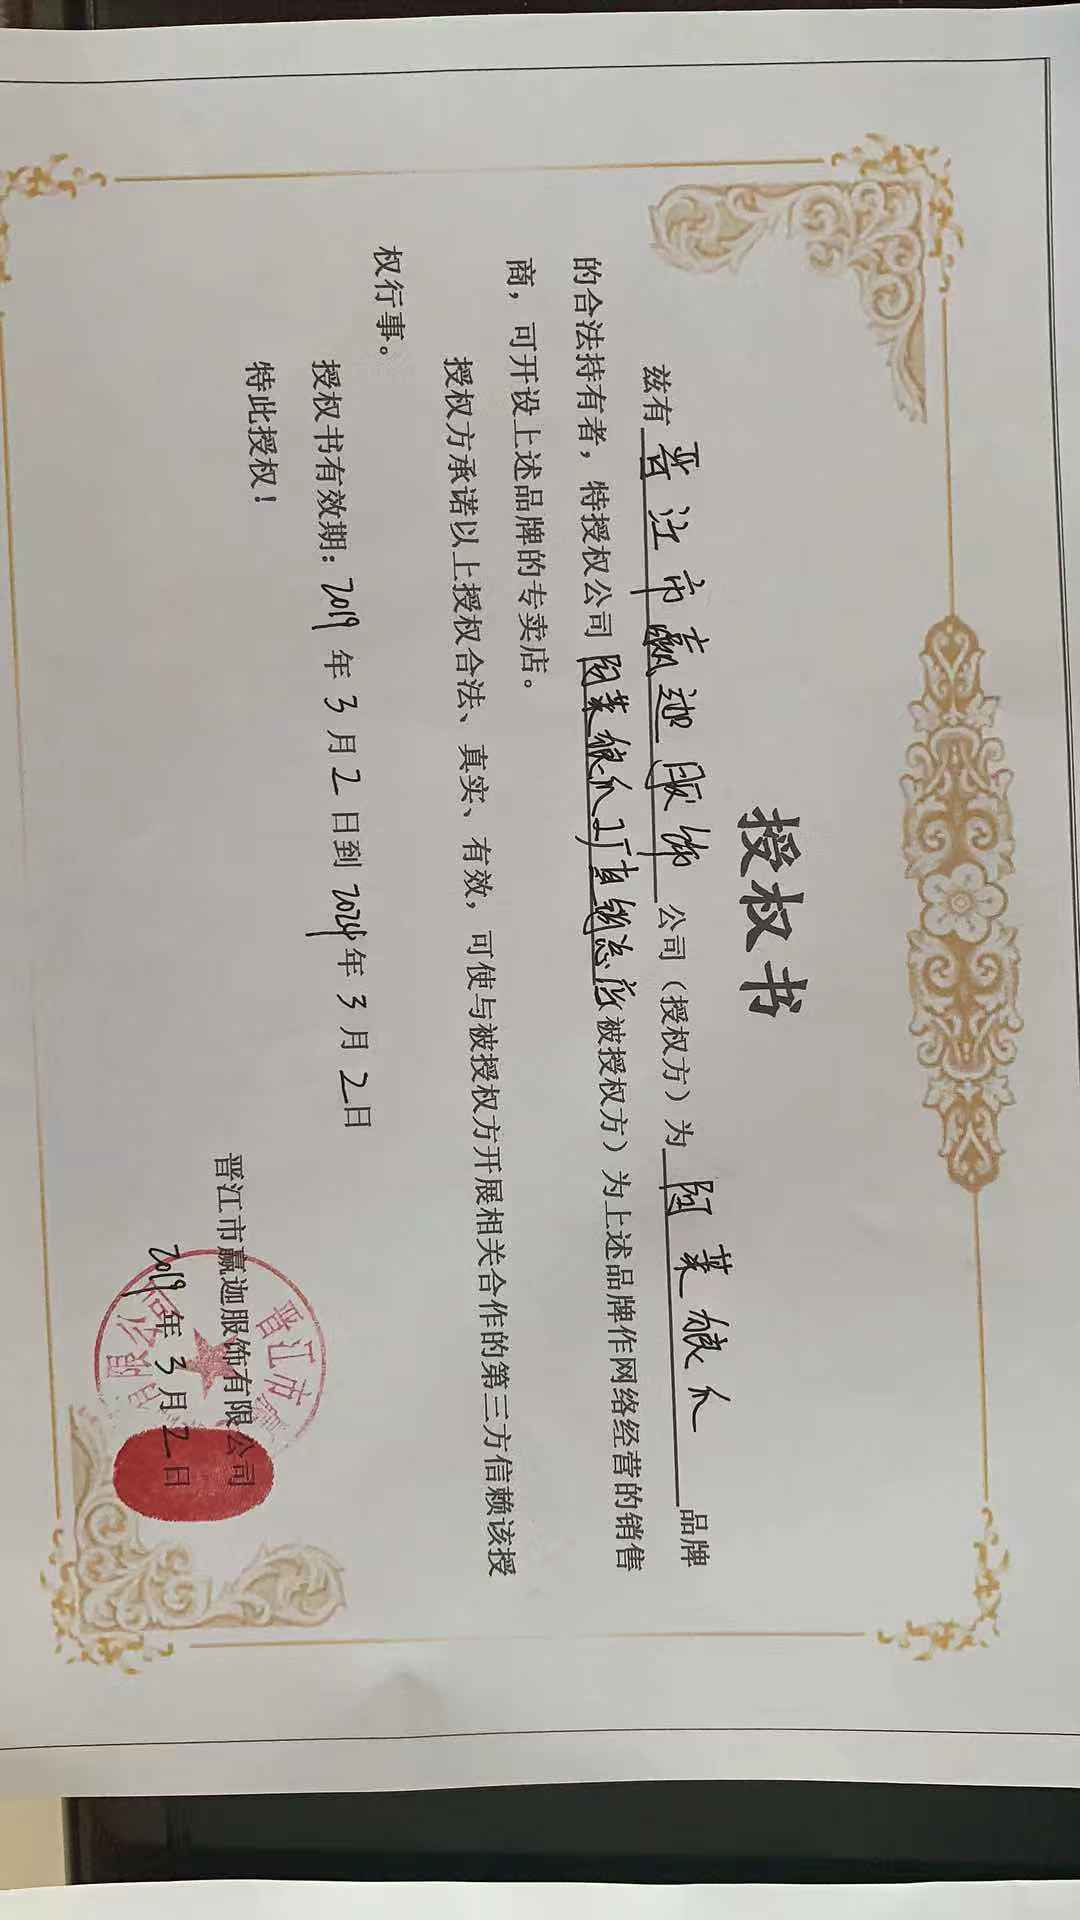 授权书
兹有 晋江市赢迦服饰 公司（授权方）为 阿莱狼爪 品牌
的合法持有者，特授权公司 阿莱狼爪工厂直销总店 被授权方）为上述品牌作网络经营的销售
商，可开设上述品牌的专卖店。
授权方承诺以上授权合法、真实、有效，可使与被授权方开展相关合作的第三方信赖该授
权行事。
授权书有效期：2019年3月2日到2024年3月2日
特此授权！
晋江市赢迦服饰有限公司
2019年3月2日
晋江市 有限公司